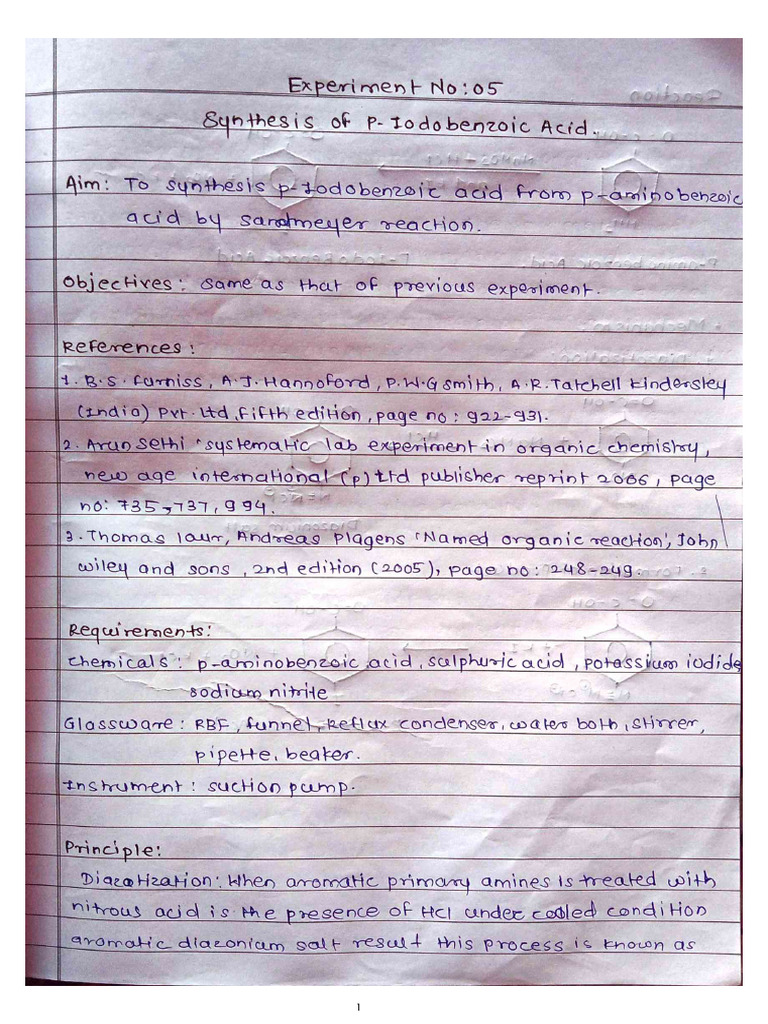 Experiment No: 05
Synthesis of P-Iodobenzoic Acid.
Aim: To synthesis p-Iodobenzoic acid from p-aminobenzoic
acid by sandmeyer reaction.
Objectives: same as that of previous experiment.
References:
1. B.S. furniss, A.J. Hannoford, P.W.G smith, A.R. Tatchell kindersley
(India) Pvt. Ltd, fifth edition, page no: 922-931.
2. Arun sethi 'systematic lab experiment in organic chemistry,
new age international (p) Ltd publisher reprint 2006, page
no: 735, 737, 994.
3. Thomas laur, Andreas Plagens 'Named organic reaction', John
wiley and sons, 2nd edition (2005), page no: 248-249.
Requirements:
chemicals: p-aminobenzoic acid, sulphuric acid, potassium iodide
sodium nitrite
Glassware: RBF, funnel, Reflux condenser, water both, stirrer,
pipette, beaker.
Instrument: suction pump.
Principle:
Diazotization: When aromatic primary amines is treated with
nitrous acid is the presence of HCl under cooled condition
aromatic diazonium salt result this process is known as
1